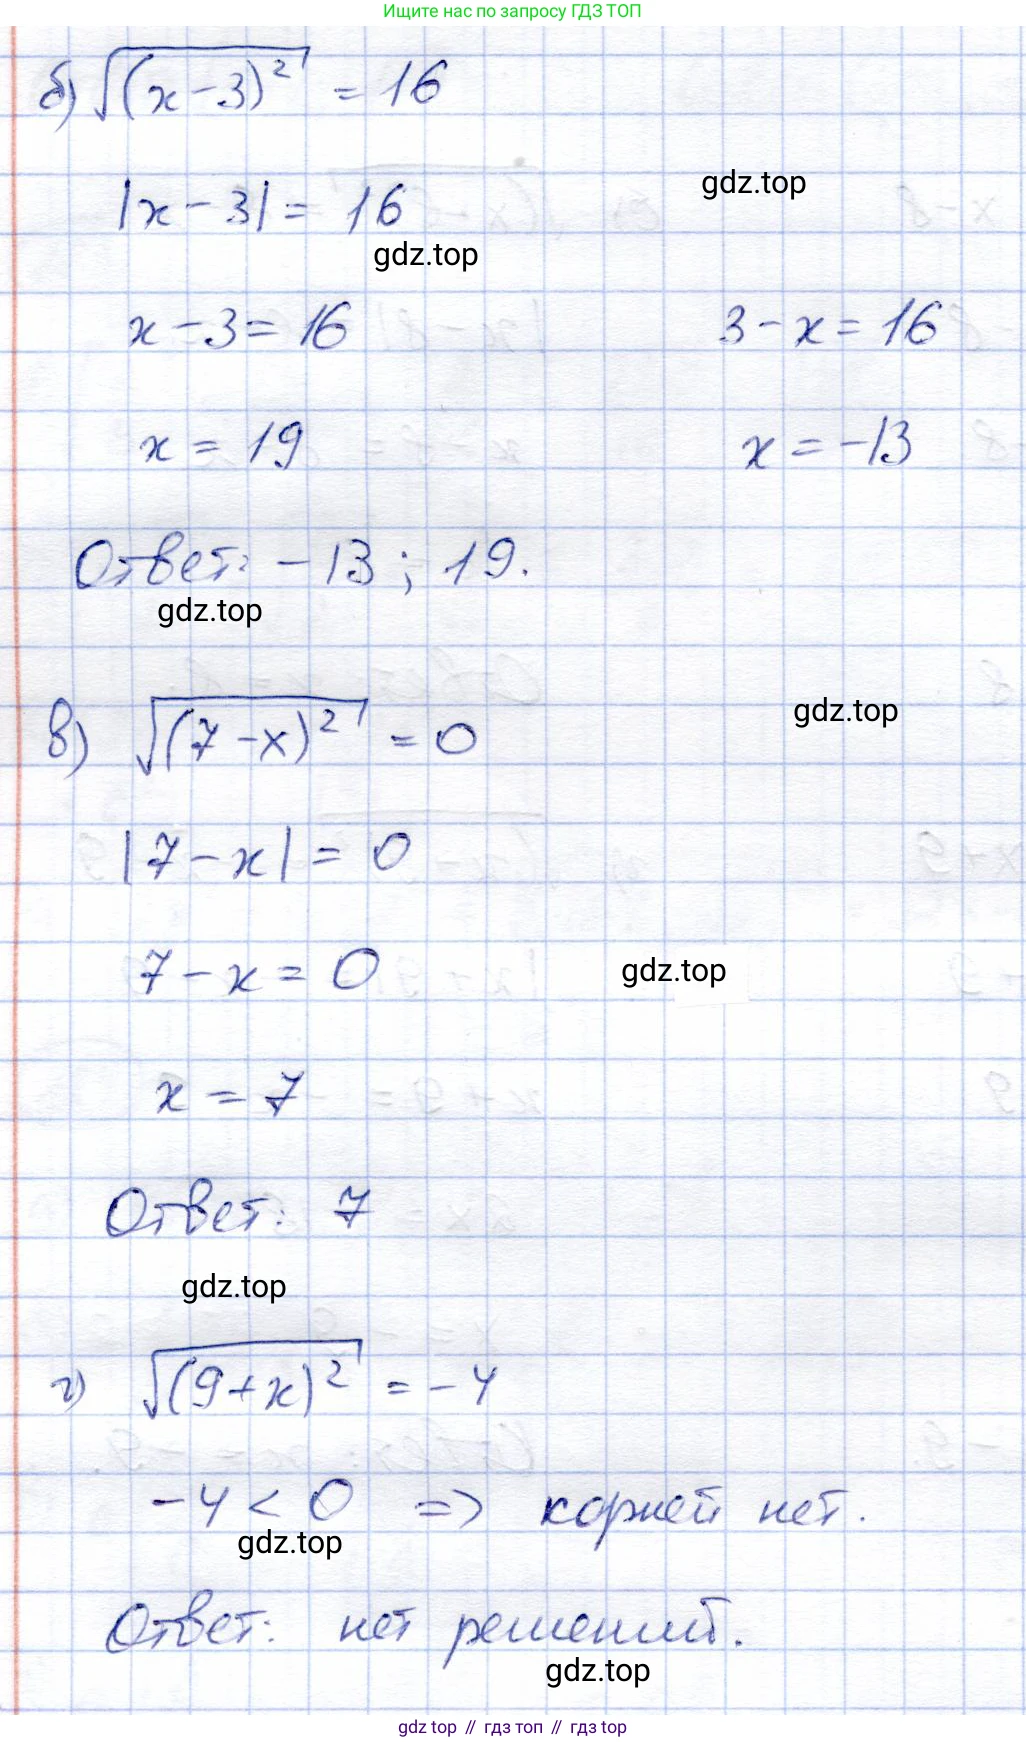 Ищите нас по запросу ГДЗ ТОП
б) √(x-3)² = 16
gdz.top
|x-3| = 16
gdz.top
x-3=16 3-x=16
x = 19 x = -13
Ответ: -13; 19.
gdz.top
в) √(7-x)² = 0
gdz.top
|7-x| = 0
7-x = 0
gdz.top
x = 7
Ответ: 7
gdz.top
г) √(9+x)² = -4
-4 < 0 => корней нет.
gdz.top
Ответ: нет решений.
gdz.top
gdz top // гдз топ // гдз top